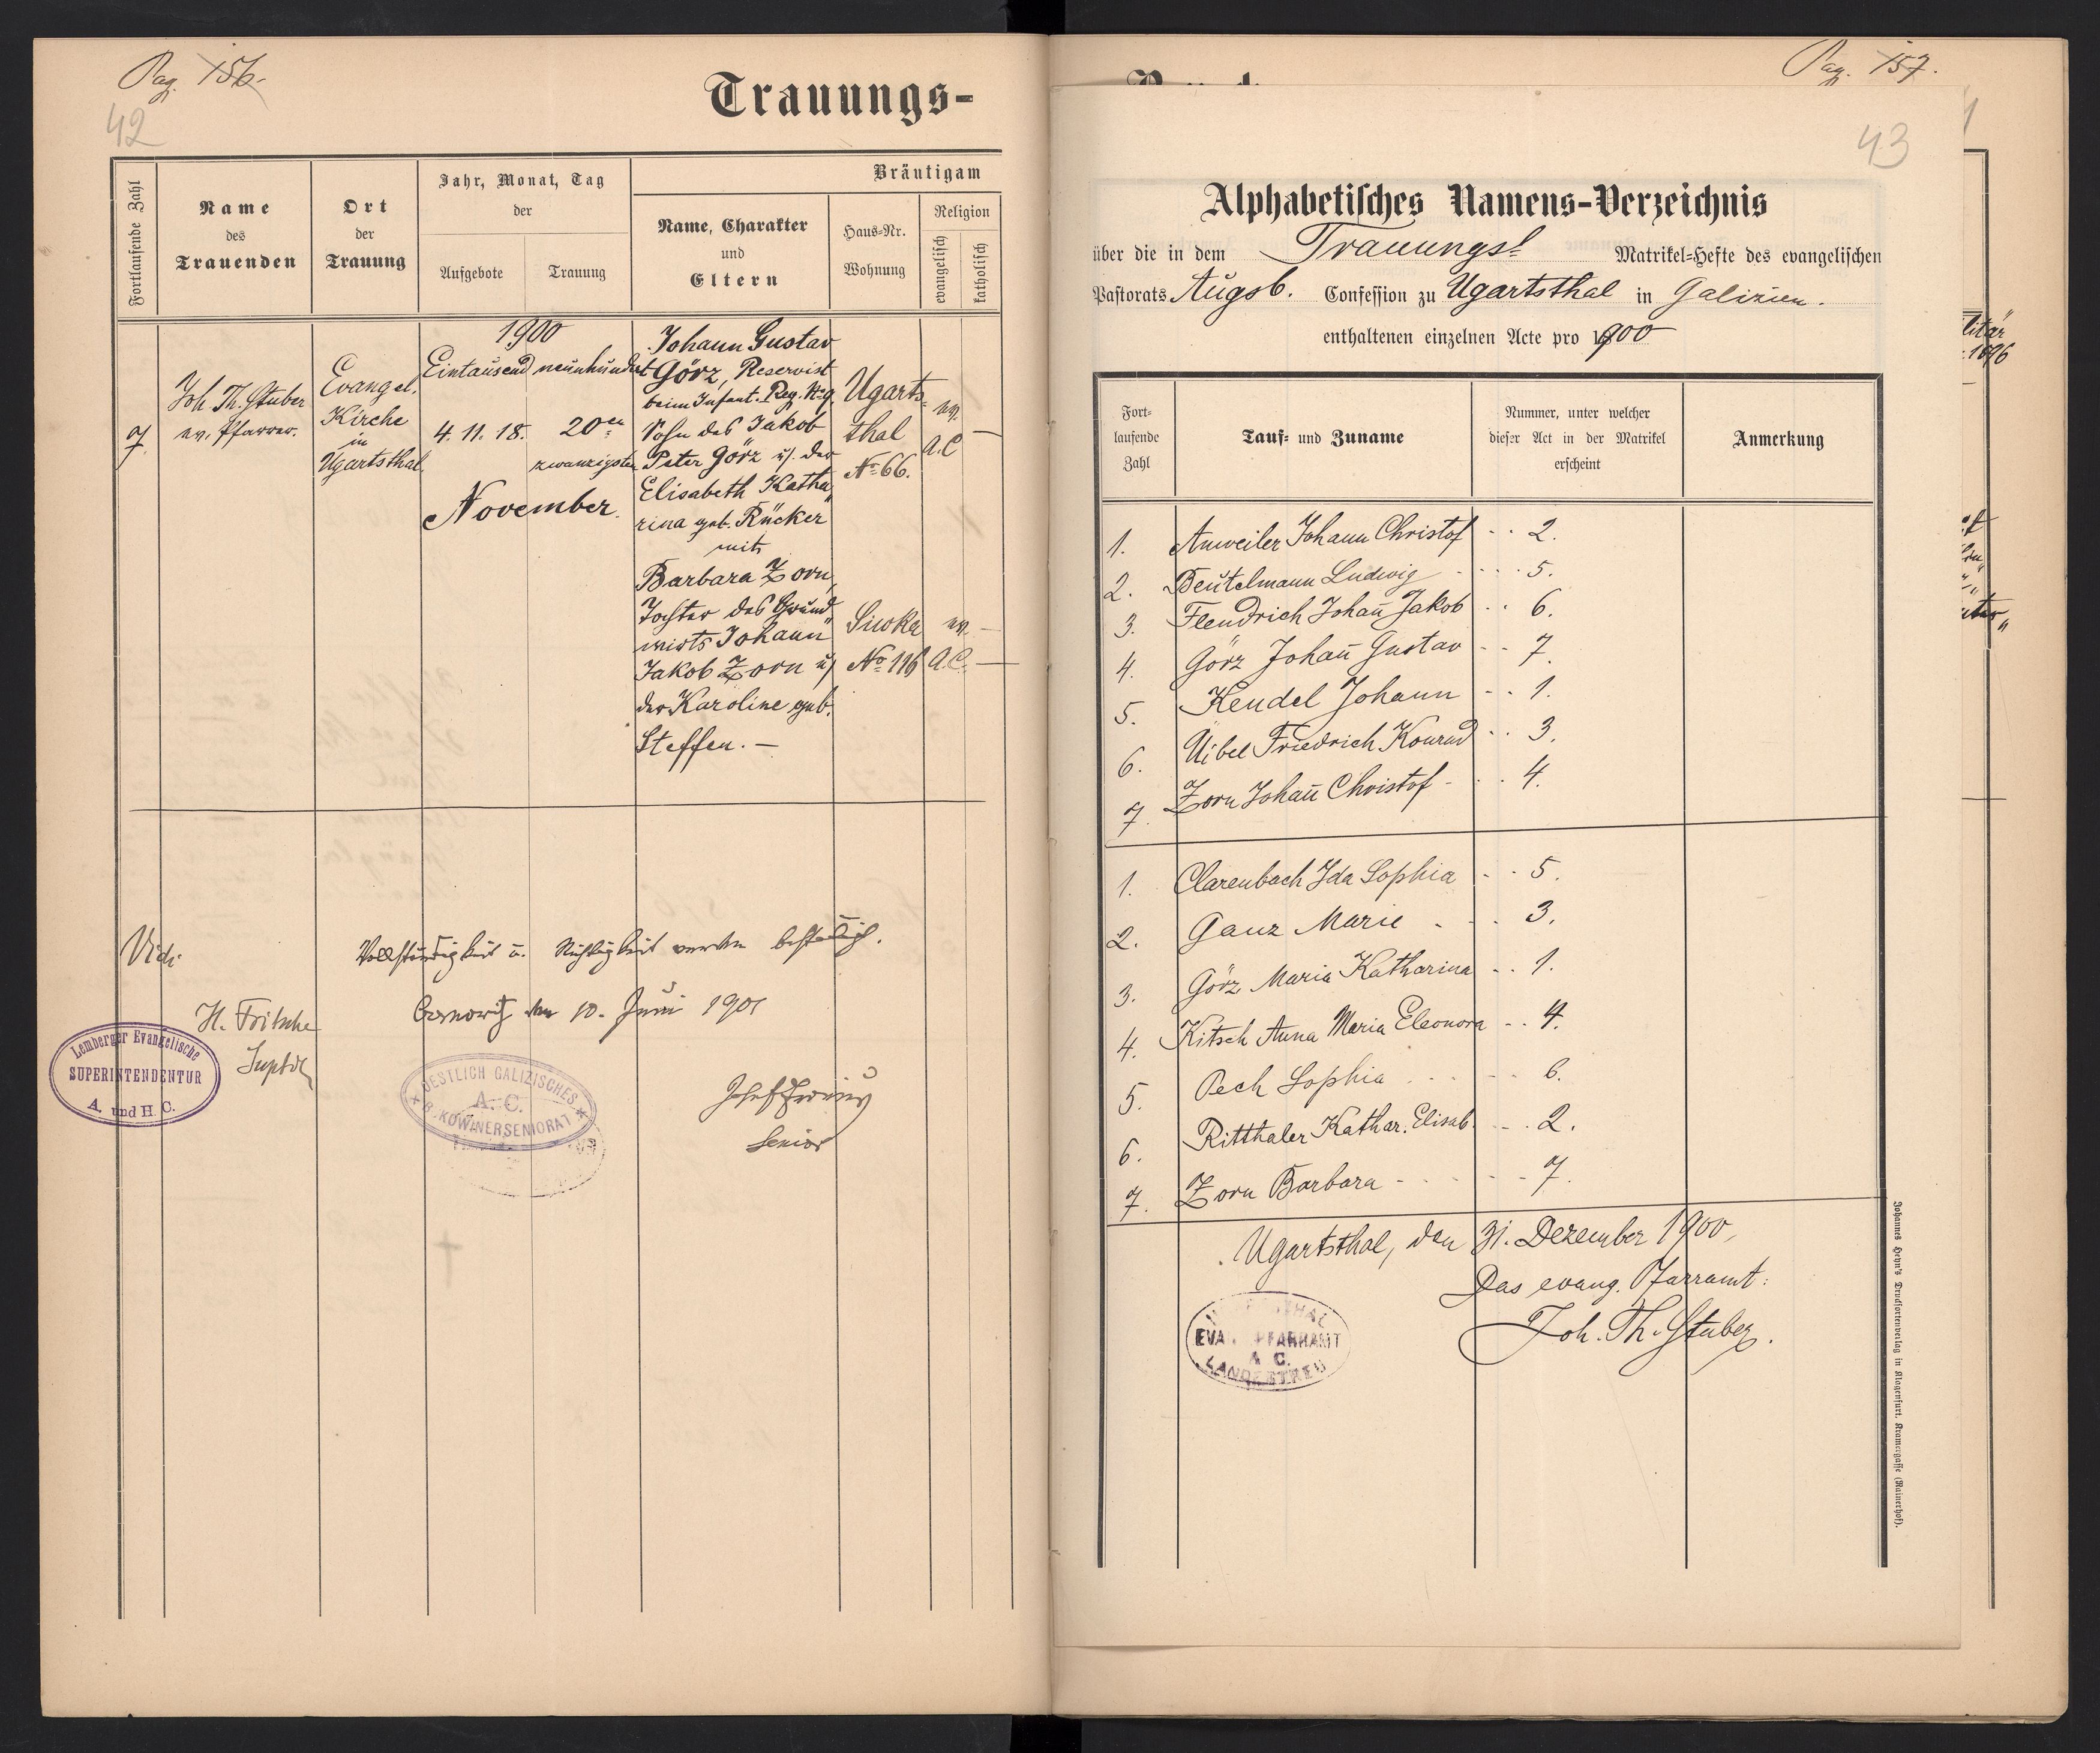 Pag. 156.
42
Trauungs-
Fortlaufende Zahl
Name
des
Trauenden
Ort
der
Trauung
Jahr, Monat, Tag
der
Aufgebote
Trauung
Bräutigam
Name, Charakter
und
Eltern
Haus-Nr.
Wohnung
Religion
evangelisch
katholisch
7.
Joh. Th. Stuber
ev. Pfarrer.
Evangel.
Kirche
in
Ugartsthal
1900
Eintausend neunhundert
4. 11. 18. 20en
zwanzigsten
November.
Johann Gustav
Görz, Reservist
beim Infant. Reg. No 9.
Sohn des Jakob
Peter Görz u. der
Elisabeth Katha
rina geb. Rücker
mit
Barbara Zorn,
Tochter des Grund
wirts Johann
Jakob Zorn u.
der Karoline geb.
Steffen. —
Ugarts-
thal
No 66.
ev.
A.C
—
Siwka
No 116
ev. —
A.C. —
Vidi
H. Fritsche
Suptdt
Vollständigkeit u. Richtigkeit werden bestätigt.
Czernowitz am 10. Juni 1901
Josef Fronius
Senior
Lemberger Evangelische
SUPERINTENDENTUR
A. und H. C.
OESTLICH GALIZISCHES
A. C.
BUKOWINERSENIORAT
Pag. 157.
43
Alphabetisches Namens-Verzeichnis
über die in dem Trauungs- Matrikel-Hefte des evangelischen
Pastorats Augsb. Confession zu Ugartsthal in Galizien.
enthaltenen einzelnen Acte pro 1900
Fort-
laufende
Zahl
Tauf- und Zuname
Nummer, unter welcher
dieser Act in der Matrikel
erscheint
Anmerkung
1. Anweiler Johann Christof - - 2.
2. Beutelmann Ludwig - - - - 5.
3. Flendrich Johañ Jakob - - 6.
4. Görz Johañ Gustav - - 7.
5. Kendel Johann - - 1.
6. Uibel Friedrich Konrad - - 3.
7. Zorn Johañ Christof - - - 4.
1. Clarenbach Ida Sophia - - 5.
2. Ganz Marie - - - 3.
3. Görz Maria Katharina - - 1.
4. Kitsch Anna Maria Eleonora - - 4.
5. Pech Sophia - - - - - 6.
6. Ritthaler Kathar. Elisab. - - 2.
7. Zorn Barbara - - - - - 7.
Ugartsthal, den 31. Dezember 1900,
Das evang. Pfarramt:
Joh. Th. Stuber.
EVA PFARRAMT
A C.
LANDESTREU
Johannes Heyn's Drucksortenverlag in Klagenfurt. Kramergasse (Rainerhof).
litär
1896